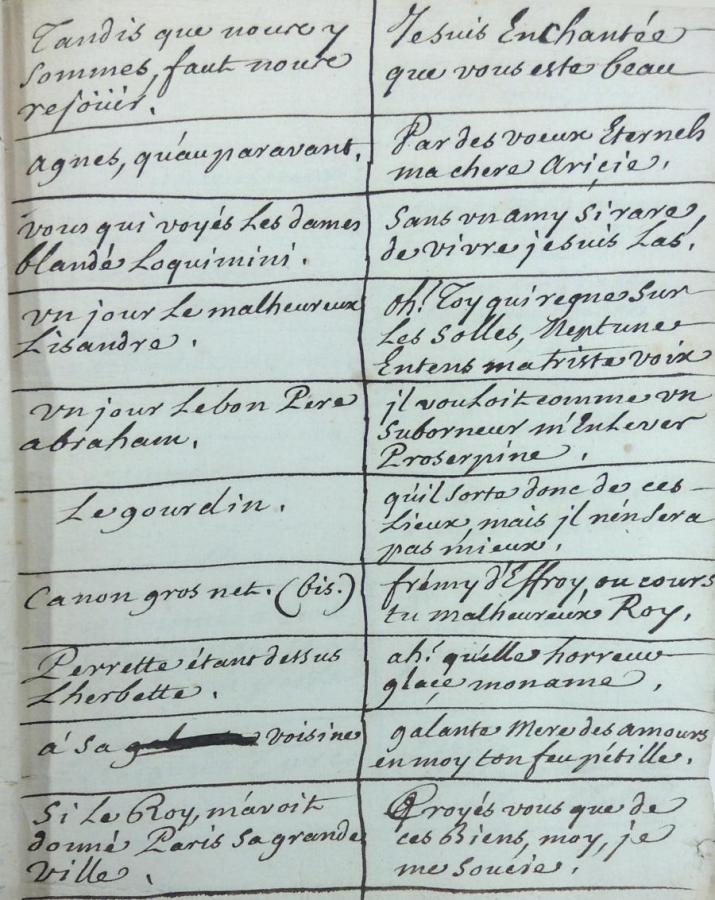 Tandis que nous y
sommes, faut nous
rejöüir.
Je suis Enchantée
que vous este beau
agnes, qu'auparavant.
Par des voeux Eternels
ma chere Aricie.
vous qui voyés Les dames
blandé Loquimini.
Sans un amy si rare,
de vivre je suis Las.
un jour Le malheureux
Lisandre.
oh! Toy qui regne Sur
Les Solles, Neptune
Entens ma triste voix
un jour Le bon Pere
abraham.
jl vouloit comme un
Suborneur m'Enlever
Proserpine.
Le gourdin.
qu'il sorte donc de ces
Lieux, mais jl n'en sera
pas mieux.
Canon gros net. (bis.)
frémy d'Effroy, ou cours
tu malheureux Roy.
Perrette étant dessus
L'herbette.
ah! qu'elle horreur
glaçe mon ame.
a' Sa voisine
galante Mere des amours
en moy ton feu pétille.
Si Le Roy, m'avoit
donné Paris Sa grande
ville.
Croyés vous que de
ces Biens, moy, je
me soucie.